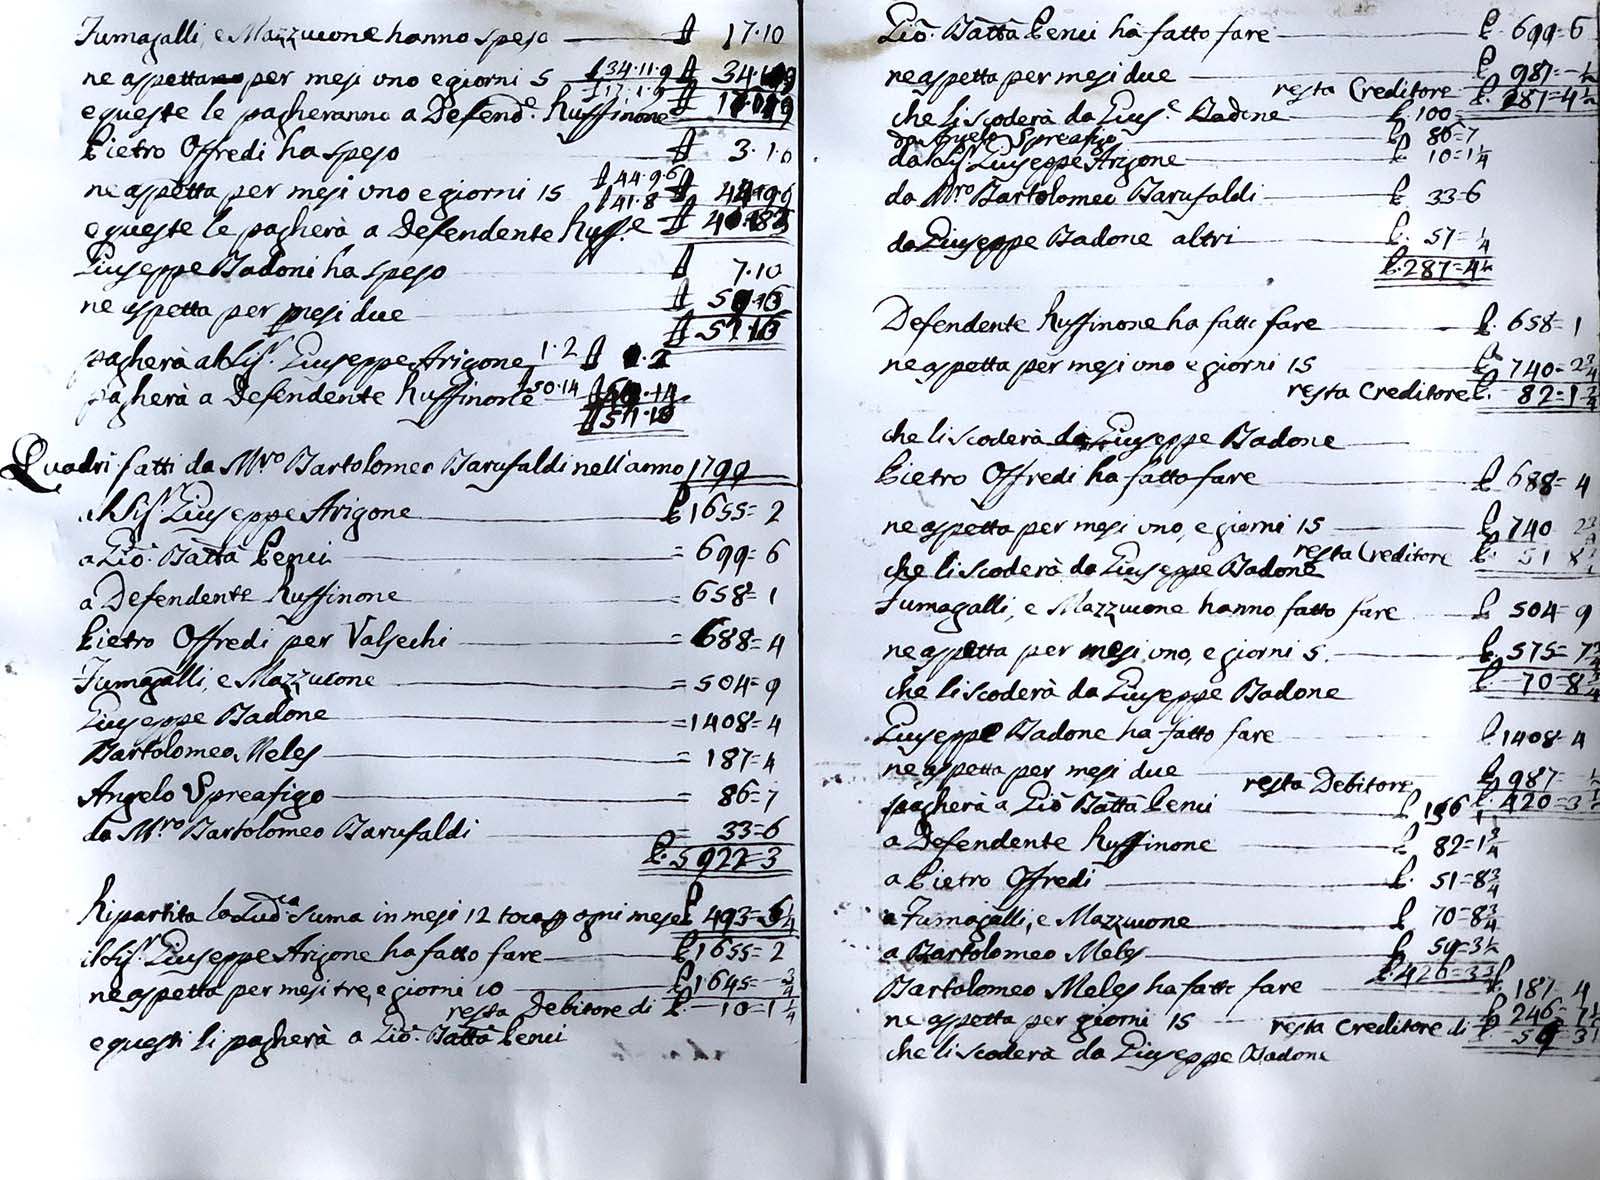 Fumagalli, e Mazzucone hanno speso 17.10
ne aspettano per mesi uno e giorni 5 34.11.9
e queste le pagheranno a Defend.e Ruffinone 17.1.9
Pietro Offredi ha speso 3.1.6
ne aspetta per mesi uno e giorni 15 44.9.6
e queste le pagherà a Defendente Ruff.e 41.8
Giuseppe Badoni ha speso 7.10
ne aspetta per mesi due
pagherà al Sig.r Giuseppe Arigone 1.2
pagherà a Defendente Ruffinone 50.14
Quadri fatti da M.ro Bartolomeo Barufaldi nell'anno 1799
al Sig.r Giuseppe Arigone L. 1655=2
a Gio. Batta Penci = 699=6
a Defendente Ruffinone = 658=1
Pietro Offredi per Valsechi = 688=4
Fumagalli, e Mazzucone = 504=9
Giuseppe Badone = 1408=4
Bartolomeo Meles = 187=4
Angelo Spreafigo = 86=7
da M.ro Bartolomeo Barufaldi = 33=6
L. 5922=3
Ripartita la sud.a suma in mesi 12 toca ogni mese L. 493=6 1/4
il Sig.r Giuseppe Arigone ha fatto fare L. 1655=2
ne aspetta per mesi tre, e giorni 10 L. 1645=- 3/4
resta Debitore di L. 10=1 1/4
e questi li pagherà a Gio. Batta Penci
Gio. Batta Penci hà fatto fare L. 699=6
ne aspetta per mesi due L. 987=- 1/2
resta Creditore L. 287=4 1/2
che li scoderà da Gius.e Badone L. 100
da Angelo Spreafigo L. 86=7
dal Sig.r Giuseppe Arigone L. 10=1 1/4
da M.ro Bartolomeo Barufaldi L. 33=6
da Giuseppe Badone altri L. 57= 1/4
L. 287=4 1/2
Defendente Ruffinone ha fatto fare L. 658=1
ne aspetta per mesi uno e giorni 15 L. 740=2 3/4
resta Creditore L. 82=1 3/4
che li scoderà da Giuseppe Badone
Pietro Offredi ha fatto fare L. 688=4
ne aspetta per mesi uno, e giorni 15 L. 740 2 3/4
resta Creditore L. 51 8 3/4
che li scoderà da Giuseppe Badone
Fumagalli, e Mazzucone hanno fatto fare L. 504=9
ne aspetta per mesi uno, e giorni 5 L. 575=7 3/4
L. 70=8 3/4
che li scoderà da Giuseppe Badone
Giuseppe Badone ha fatto fare L. 1408=4
ne aspetta per mesi due L. 987=- 1/2
resta Debitore L. 420=3 1/2
pagherà a Gio Batta Penci
a Defendente Ruffinone L. 82=1 3/4
a Pietro Offredi L. 51=8 3/4
a Fumagalli, e Mazzucone L. 70=8 3/4
a Bartolomeo Meles L. 59=3 1/2
Bartolomeo Meles ha fatto fare L. 187=4
ne aspetta per giorni 15 L. 246=7 1/2
resta Creditore di L. 59 3 1/2
che li scoderà da Giuseppe Badone